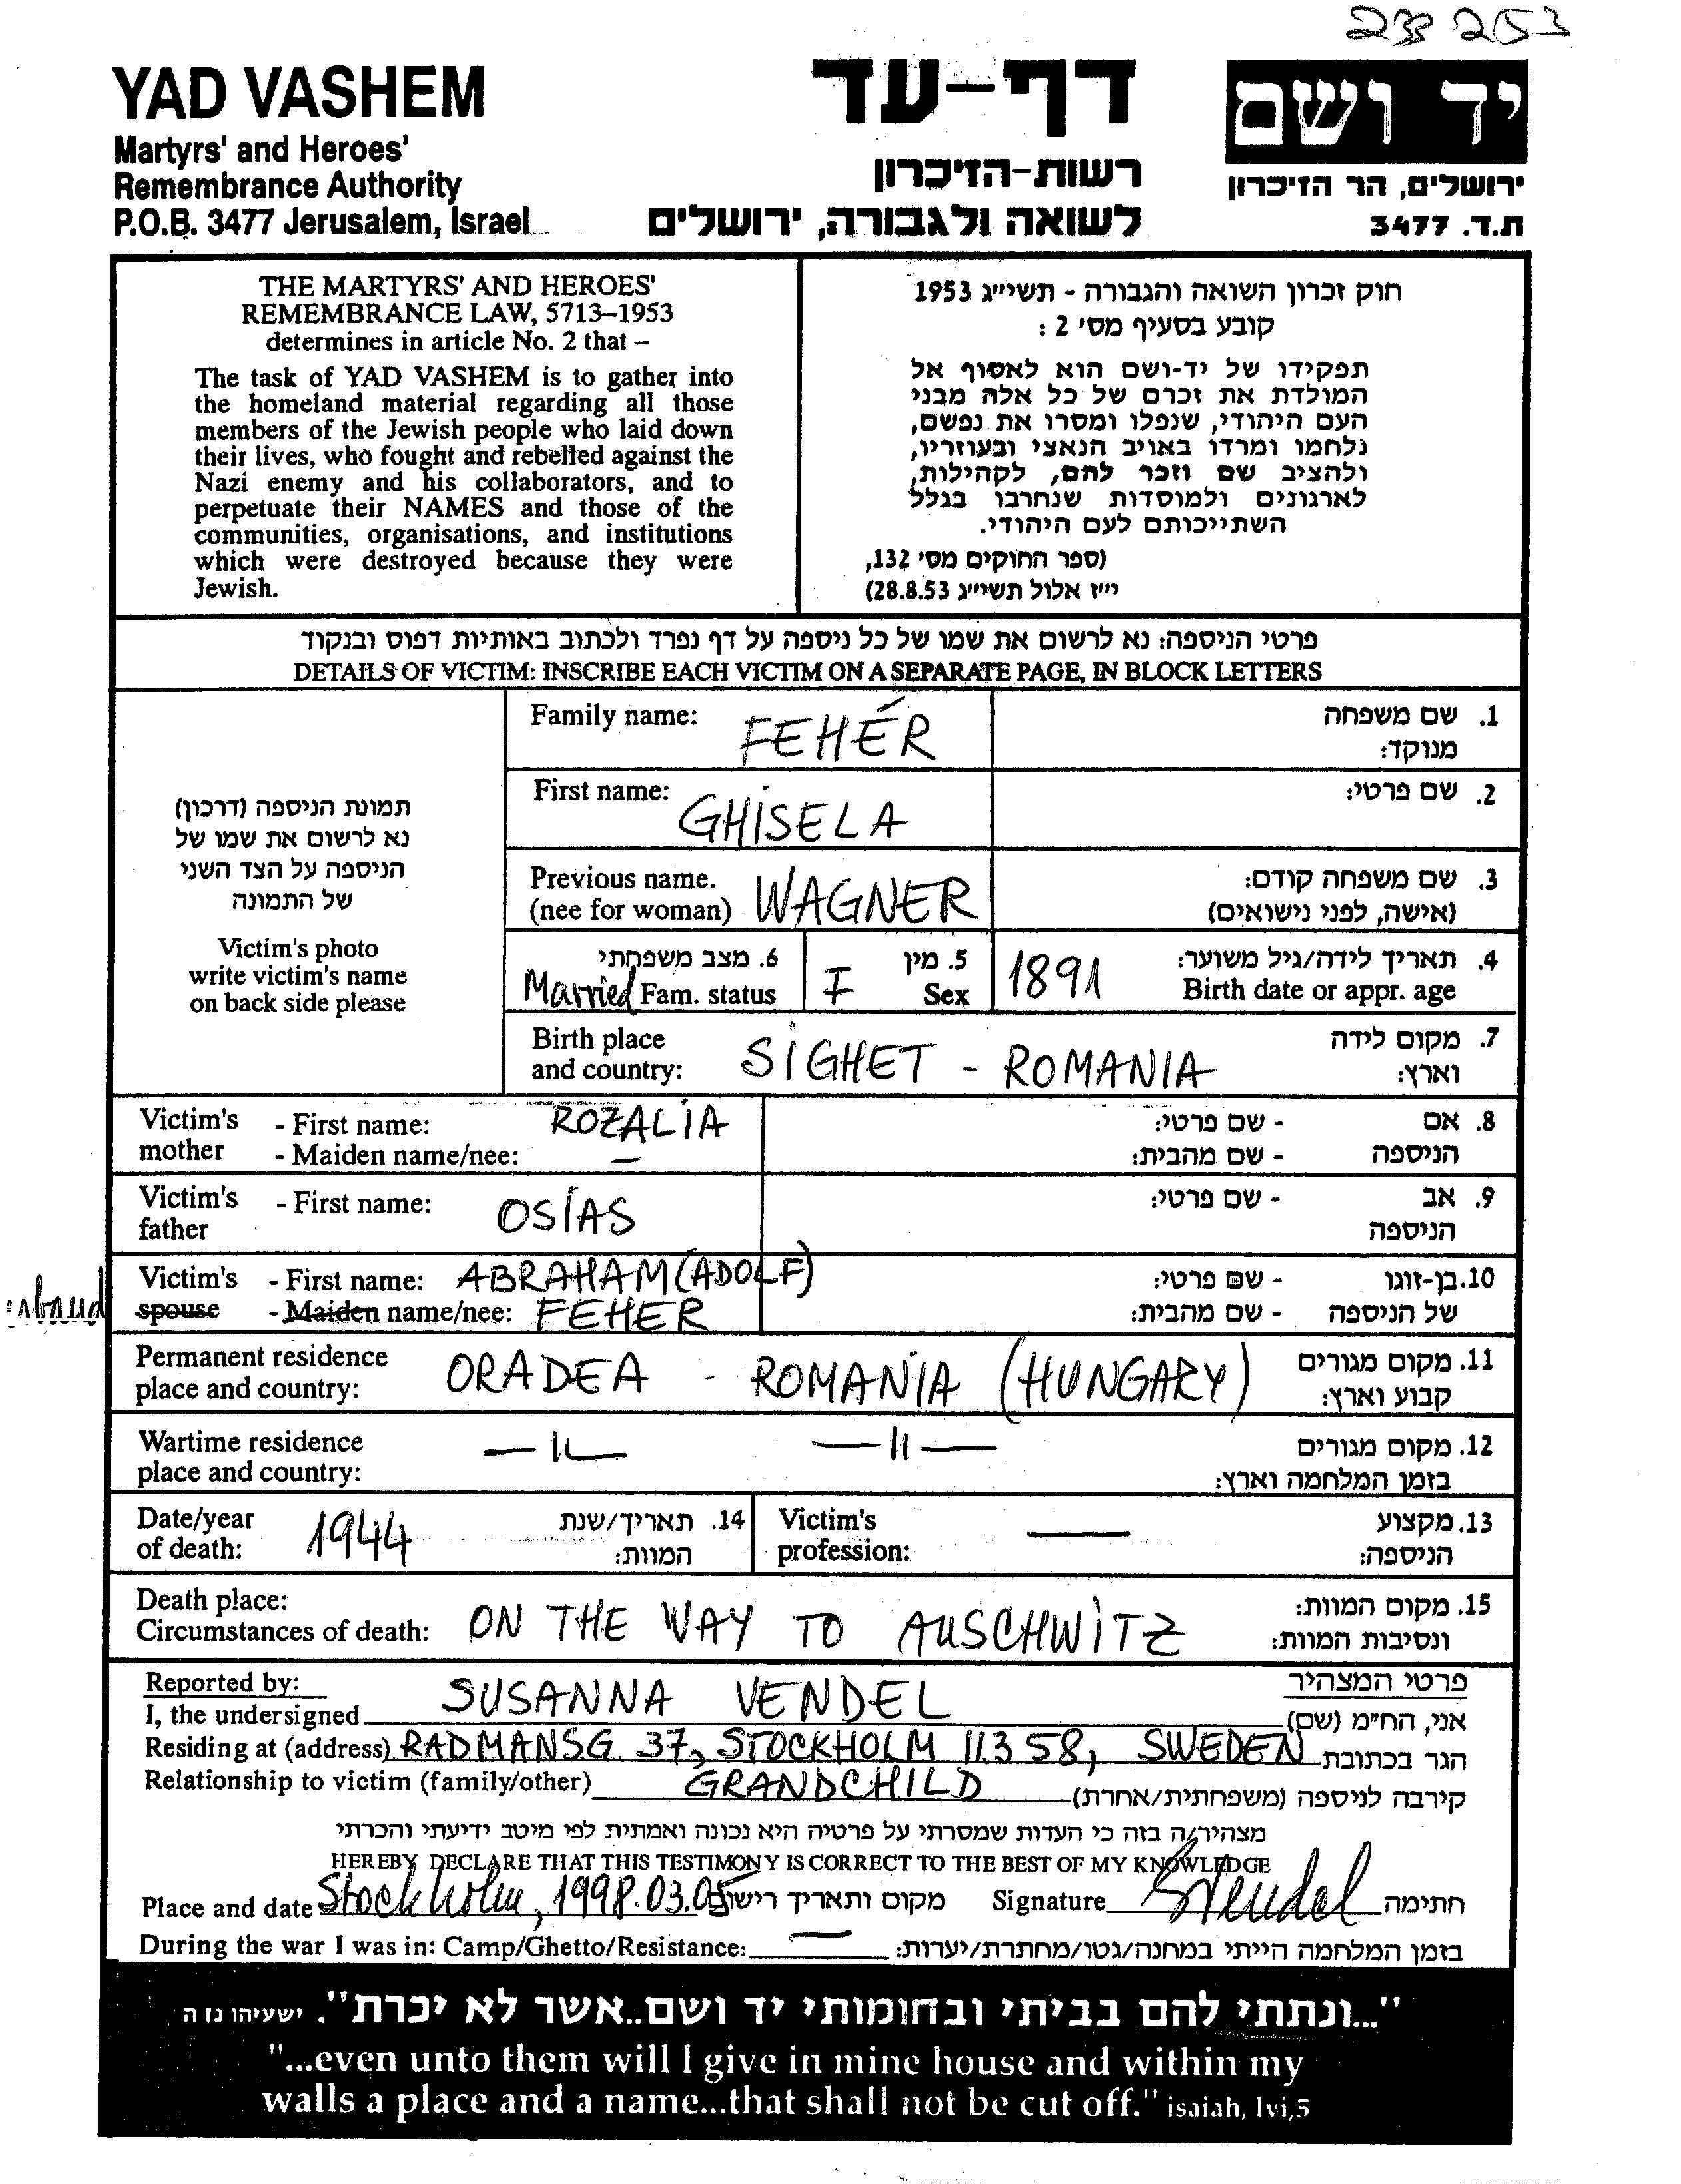 233253
YAD VASHEM
Martyrs' and Heroes'
Remembrance Authority
P.O.B. 3477 Jerusalem, Israel
דף-עד
רשות-הזיכרון
לשואה ולגבורה, ירושלים
יד ושם
ירושלים, הר הזיכרון
ת.ד. 3477
THE MARTYRS' AND HEROES'
REMEMBRANCE LAW, 5713–1953
determines in article No. 2 that –
The task of YAD VASHEM is to gather into
the homeland material regarding all those
members of the Jewish people who laid down
their lives, who fought and rebelled against the
Nazi enemy and his collaborators, and to
perpetuate their NAMES and those of the
communities, organisations, and institutions
which were destroyed because they were
Jewish.
חוק זכרון השואה והגבורה - תשי״ג 1953
קובע בסעיף מס׳ 2 :
תפקידו של יד-ושם הוא לאסוף אל
המולדת את זכרם של כל אלה מבני
העם היהודי, שנפלו ומסרו את נפשם,
נלחמו ומרדו באויב הנאצי ובעוזריו,
ולהציב שם וזכר להם, לקהילות,
לארגונים ולמוסדות שנחרבו בגלל
השתייכותם לעם היהודי.
(ספר החוקים מס׳ 132,
י״ז אלול תשי״ג 28.8.53)
פרטי הניספה: נא לרשום את שמו של כל ניספה על דף נפרד ולכתוב באותיות דפוס ובנקוד
DETAILS OF VICTIM: INSCRIBE EACH VICTIM ON A SEPARATE PAGE, IN BLOCK LETTERS
תמונת הניספה (דרכון)
נא לרשום את שמו של
הניספה על הצד השני
של התמונה
Victim's photo
write victim's name
on back side please
Family name: FEHÉR 1. שם משפחה
מנוקד:
First name: GHISELA 2. שם פרטי:
Previous name. WAGNER 3. שם משפחה קודם:
(nee for woman) (אישה, לפני נישואים)
6. מצב משפחתי 5. מין 4. תאריך לידה/גיל משוער:
Married Fam. status F Sex 1891 Birth date or appr. age
Birth place 7. מקום לידה
and country: SIGHET - ROMANIA וארץ:
Victim's - First name: ROZALIA - שם פרטי: 8. אם
mother - Maiden name/nee: — - שם מהבית: הניספה
Victim's - First name: OSIAS - שם פרטי: 9. אב
father הניספה
Victim's - First name: ABRAHAM (ADOLF) - שם פרטי: 10. בן-זוגו
spouse - Maiden name/nee: FEHER - שם מהבית: של הניספה
Permanent residence 11. מקום מגורים
place and country: ORADEA - ROMANIA (HUNGARY) קבוע וארץ:
Wartime residence —11— —11— 12. מקום מגורים
place and country: בזמן המלחמה וארץ:
Date/year 1944 14. תאריך/שנת Victim's — 13. מקצוע
of death: המוות: profession: הניספה:
Death place: 15. מקום המוות:
Circumstances of death: ON THE WAY TO AUSCHWITZ ונסיבות המוות:
Reported by: פרטי המצהיר
I, the undersigned SUSANNA VENDEL אני, הח״מ (שם)
Residing at (address) RADMANSG. 37, STOCKHOLM 11358, SWEDEN הגר בכתובת
Relationship to victim (family/other) GRANDCHILD קירבה לניספה (משפחתית/אחרת)
מצהיר/ה בזה כי העדות שמסרתי על פרטיה היא נכונה ואמתית לפי מיטב ידיעתי והכרתי
HEREBY DECLARE THAT THIS TESTIMONY IS CORRECT TO THE BEST OF MY KNOWLEDGE
Place and date Stockholm, 1998.03.05 מקום ותאריך רישום Signature SVendel חתימה
During the war I was in: Camp/Ghetto/Resistance: — בזמן המלחמה הייתי במחנה/גטו/מחתרת/יערות:
"...ונתתי להם בביתי ובחומותי יד ושם..אשר לא יכרת". ישעיהו נז ה
"...even unto them will I give in mine house and within my
walls a place and a name...that shall not be cut off." isaiah, lvi,5